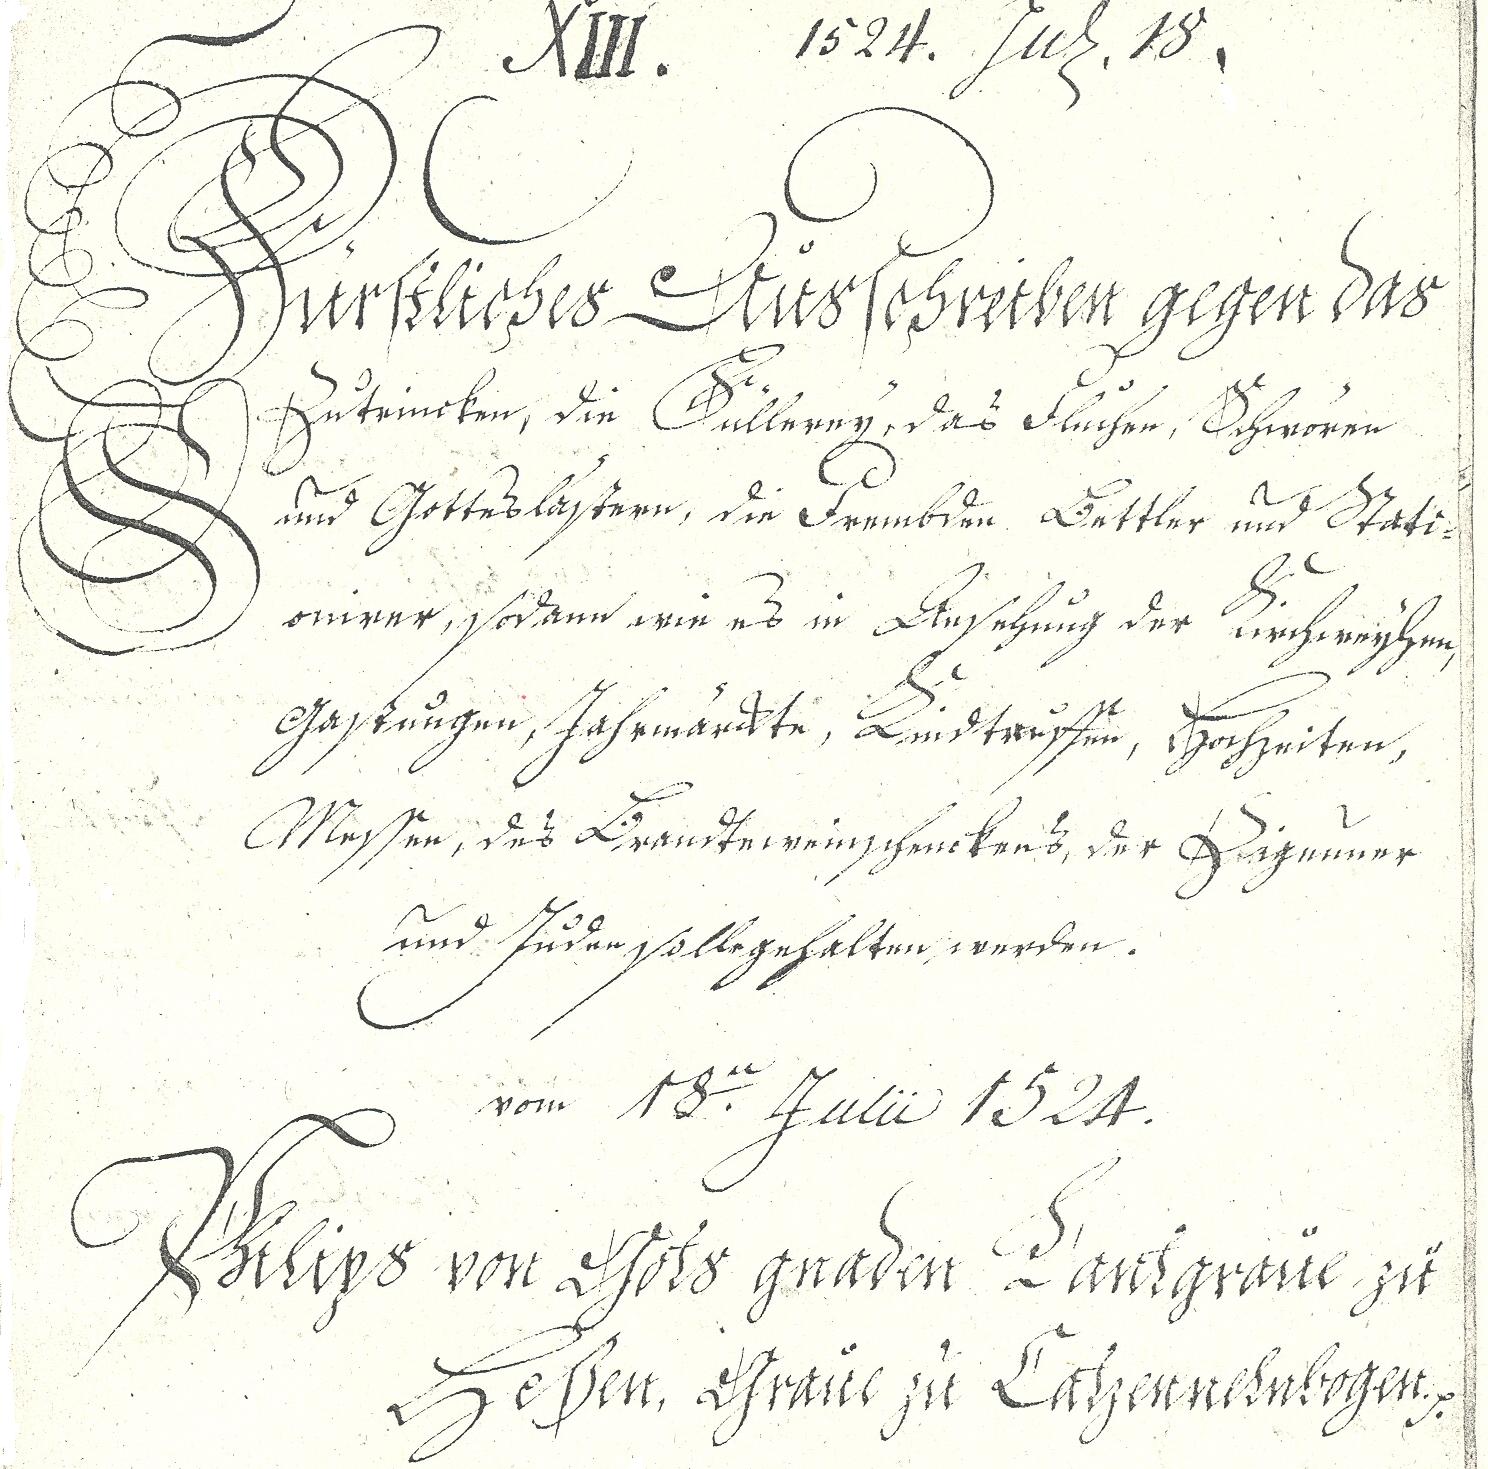 XIII. 1524. Jul. 18.
Fürstliches Ausschreiben gegen das
Zutrincken, die Füllerey, das Fluchen, Schwören
und Gotteslästern, die Frembden Bettler und Stati-
onirer, sodann wie es in Ansehung der Kirchweyhen,
Gastungen, Jahrmärckte, Kindtauffen, Hochzeiten,
Messen, des Brandteweinschenckens, der Zigeuner
und Juden solle gehalten werden.
vom 18ten Julii 1524.
Philips von Gots gnaden Lantgraue zu
Heßen, Graue zu Catzennelnbogen p.